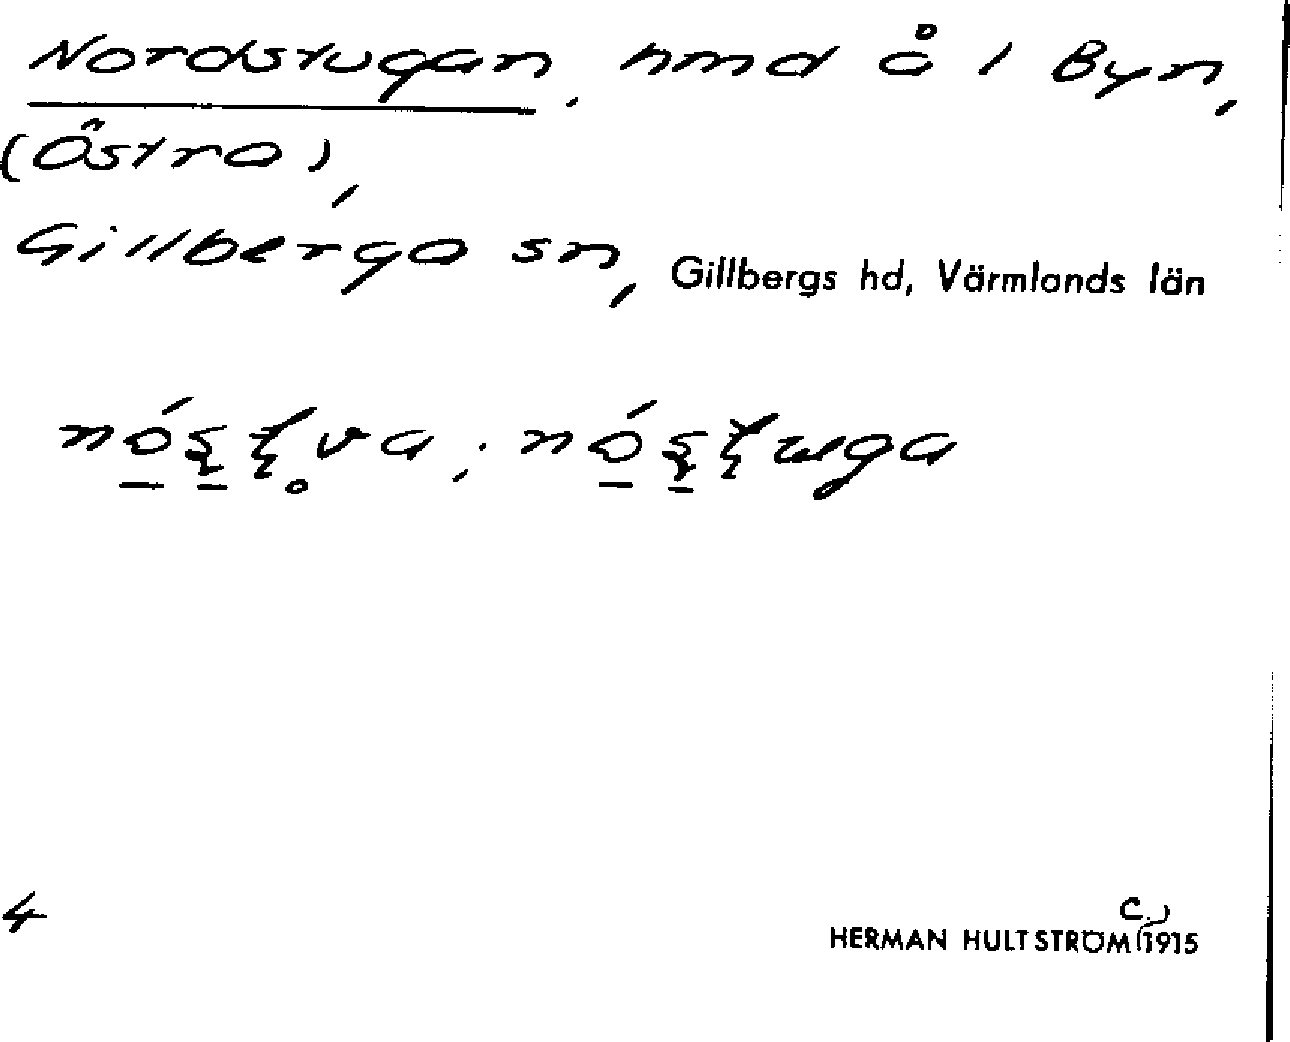 Nordstugan, hmd å 1 Byn,
(Östra),
Gillberga sn, Gillbergs hd, Värmlands län
4
C.
HERMAN HULTSTRÖM 1915